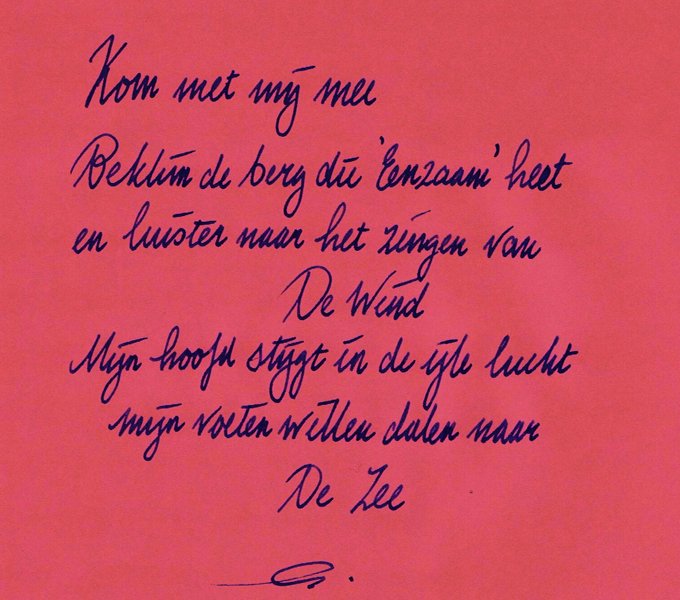 Kom met mij mee
Beklim de berg die 'Eenzaam' heet
en luister naar het zingen van
De Wind
Mijn hoofd stijgt in de ijle lucht
mijn voeten willen dalen naar
De Zee